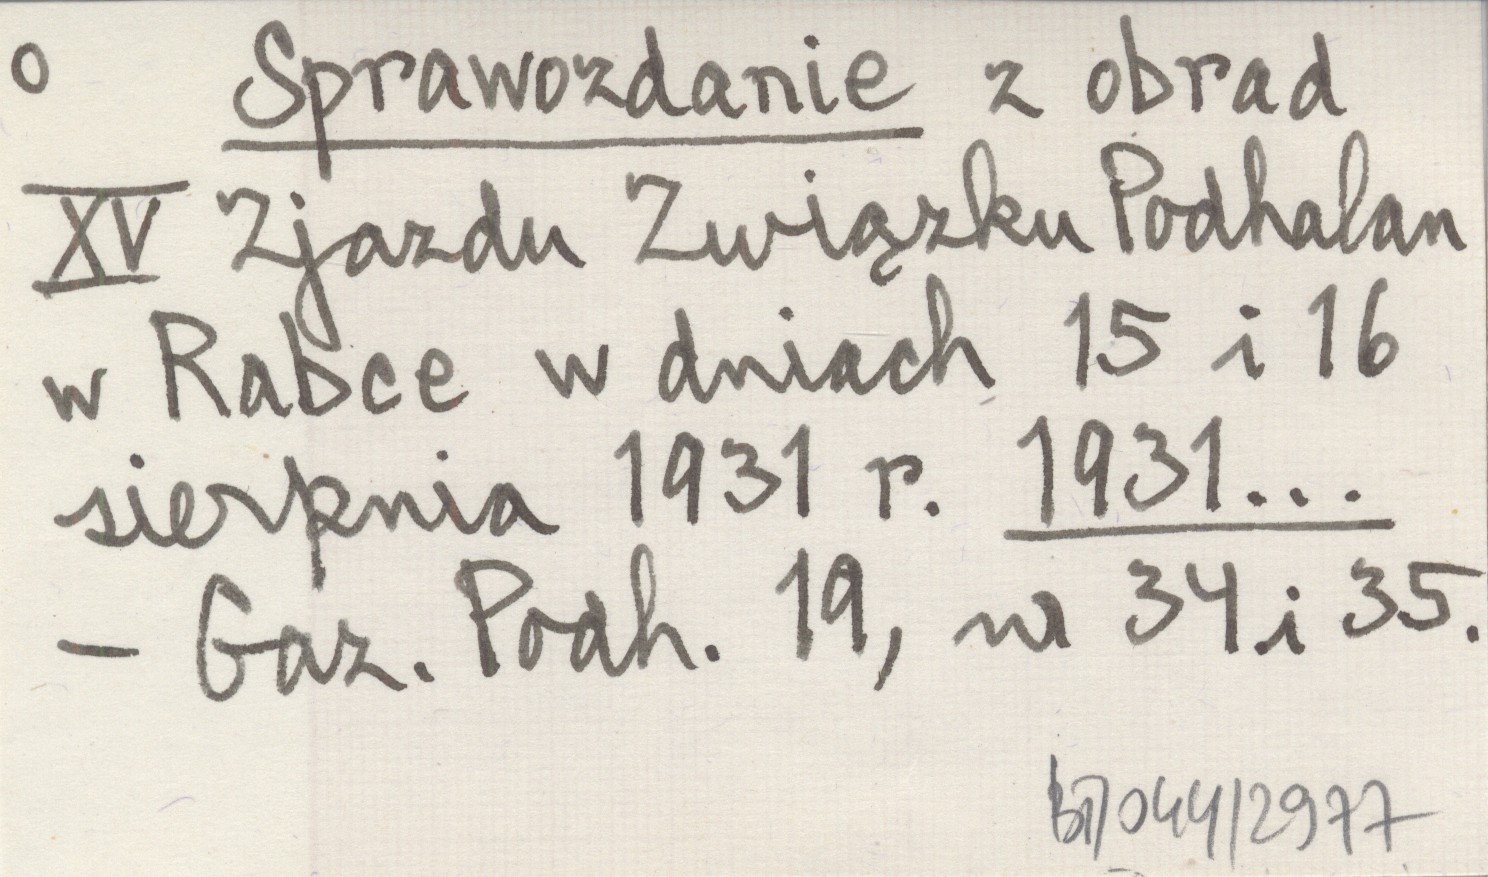 o Sprawozdanie z obrad
XV Zjazdu Związku Podhalan
w Rabce w dniach 15 i 16
sierpnia 1931 r. 1931...
- Gaz. Podh. 19, nr 34 i 35.
BJ/044/2977